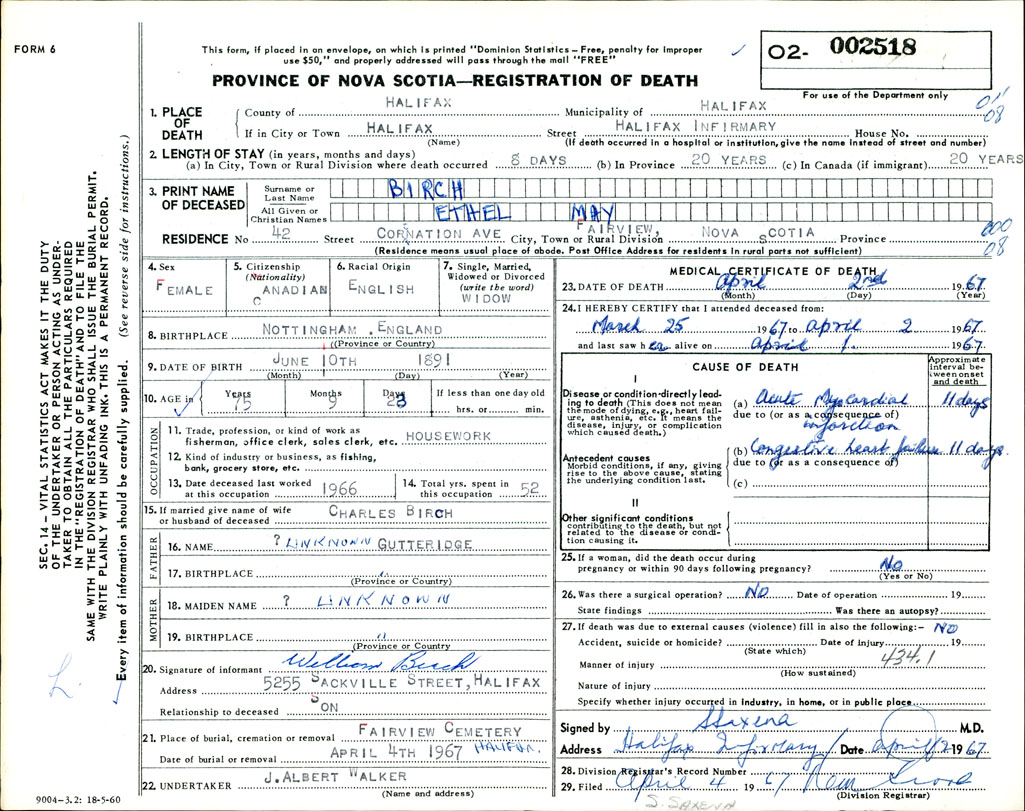 FORM 6
This form, if placed in an envelope, on which is printed "Dominion Statistics – Free, penalty for improper
use $50," and properly addressed will pass through the mail "FREE"
O2- 002518
PROVINCE OF NOVA SCOTIA—REGISTRATION OF DEATH
For use of the Department only
1. PLACE OF DEATH
County of HALIFAX Municipality of HALIFAX
08
If in City or Town HALIFAX Street HALIFAX INFIRMARY House No.
(Name) (If death occurred in a hospital or institution, give the name instead of street and number)
2. LENGTH OF STAY (in years, months and days)
(a) In City, Town or Rural Division where death occurred 8 DAYS (b) In Province 20 YEARS (c) In Canada (if immigrant) 20 YEARS
3. PRINT NAME OF DECEASED
Surname or Last Name BIRCH
All Given or Christian Names ETHEL MAY
RESIDENCE No 42 Street CORNATION AVE City, Town or Rural Division FAIRVIEW, NOVA SCOTIA Province
000
08
(Residence means usual place of abode. Post Office Address for residents in rural parts not sufficient)
4. Sex FEMALE
5. Citizenship (Nationality) CANADIAN
6. Racial Origin ENGLISH
7. Single, Married, Widowed or Divorced (write the word) WIDOW
8. BIRTHPLACE NOTTINGHAM, ENGLAND
(Province or Country)
9. DATE OF BIRTH JUNE 10TH 1891
(Month) (Day) (Year)
10. AGE in Years 75 Months 9 Days 23 If less than one day old hrs. or min.
OCCUPATION
11. Trade, profession, or kind of work as
fisherman, office clerk, sales clerk, etc. HOUSEWORK
12. Kind of industry or business, as fishing,
bank, grocery store, etc.
13. Date deceased last worked at this occupation 1966
14. Total yrs. spent in this occupation 52
15. If married give name of wife
or husband of deceased CHARLES BIRCH
FATHER
16. NAME ? UNKNOWN GUTTERIDGE
17. BIRTHPLACE "
(Province or Country)
MOTHER
18. MAIDEN NAME ? UNKNOWN
19. BIRTHPLACE "
(Province or Country)
20. Signature of informant William Birch
Address 5255 SACKVILLE STREET, HALIFAX
Relationship to deceased SON
21. Place of burial, cremation or removal FAIRVIEW CEMETERY
Date of burial or removal APRIL 4TH 1967 HALIFAX.
22. UNDERTAKER J. ALBERT WALKER
(Name and address)
9004-3.2: 18-5-60
MEDICAL CERTIFICATE OF DEATH
23. DATE OF DEATH April 2nd 1967
(Month) (Day) (Year)
24. I HEREBY CERTIFY that I attended deceased from:
March 25 1967 to April 2 1967
and last saw her alive on April 1. 1967.
CAUSE OF DEATH
Approximate interval between onset and death
I
Disease or condition directly leading to death (This does not mean the mode of dying, e.g., heart failure, asthenia, etc. It means the disease, injury, or complication which caused death.)
(a) Acute Myocardial 11 days
due to (or as a consequence of)
infarction
Antecedent causes
Morbid conditions, if any, giving rise to the above cause, stating the underlying condition last.
(b) Congestive heart failure 11 days.
due to (or as a consequence of)
(c)
II
Other significant conditions
contributing to the death, but not related to the disease or condition causing it.
25. If a woman, did the death occur during
pregnancy or within 90 days following pregnancy? No
(Yes or No)
26. Was there a surgical operation? NO Date of operation 19
State findings Was there an autopsy?
27. If death was due to external causes (violence) fill in also the following:- NO
Accident, suicide or homicide? Date of injury 19
(State which) 434.1
Manner of injury
(How sustained)
Nature of injury
Specify whether injury occurred in industry, in home, or in public place
Signed by S Saxena M.D.
Address Halifax Infirmary Date April 2 1967.
28. Division Registrar's Record Number
29. Filed April 4 1967
(Division Registrar)
S. SAXENA
SEC. 14 – VITAL STATISTICS ACT MAKES IT THE DUTY
OF THE UNDERTAKER OR PERSON ACTING AS UNDER-
TAKER TO OBTAIN ALL THE PARTICULARS REQUIRED
IN THE "REGISTRATION OF DEATH" AND TO FILE THE
SAME WITH THE DIVISION REGISTRAR WHO SHALL ISSUE THE BURIAL PERMIT.
WRITE PLAINLY WITH UNFADING INK. THIS IS A PERMANENT RECORD.
Every item of information should be carefully supplied. (See reverse side for instructions.)